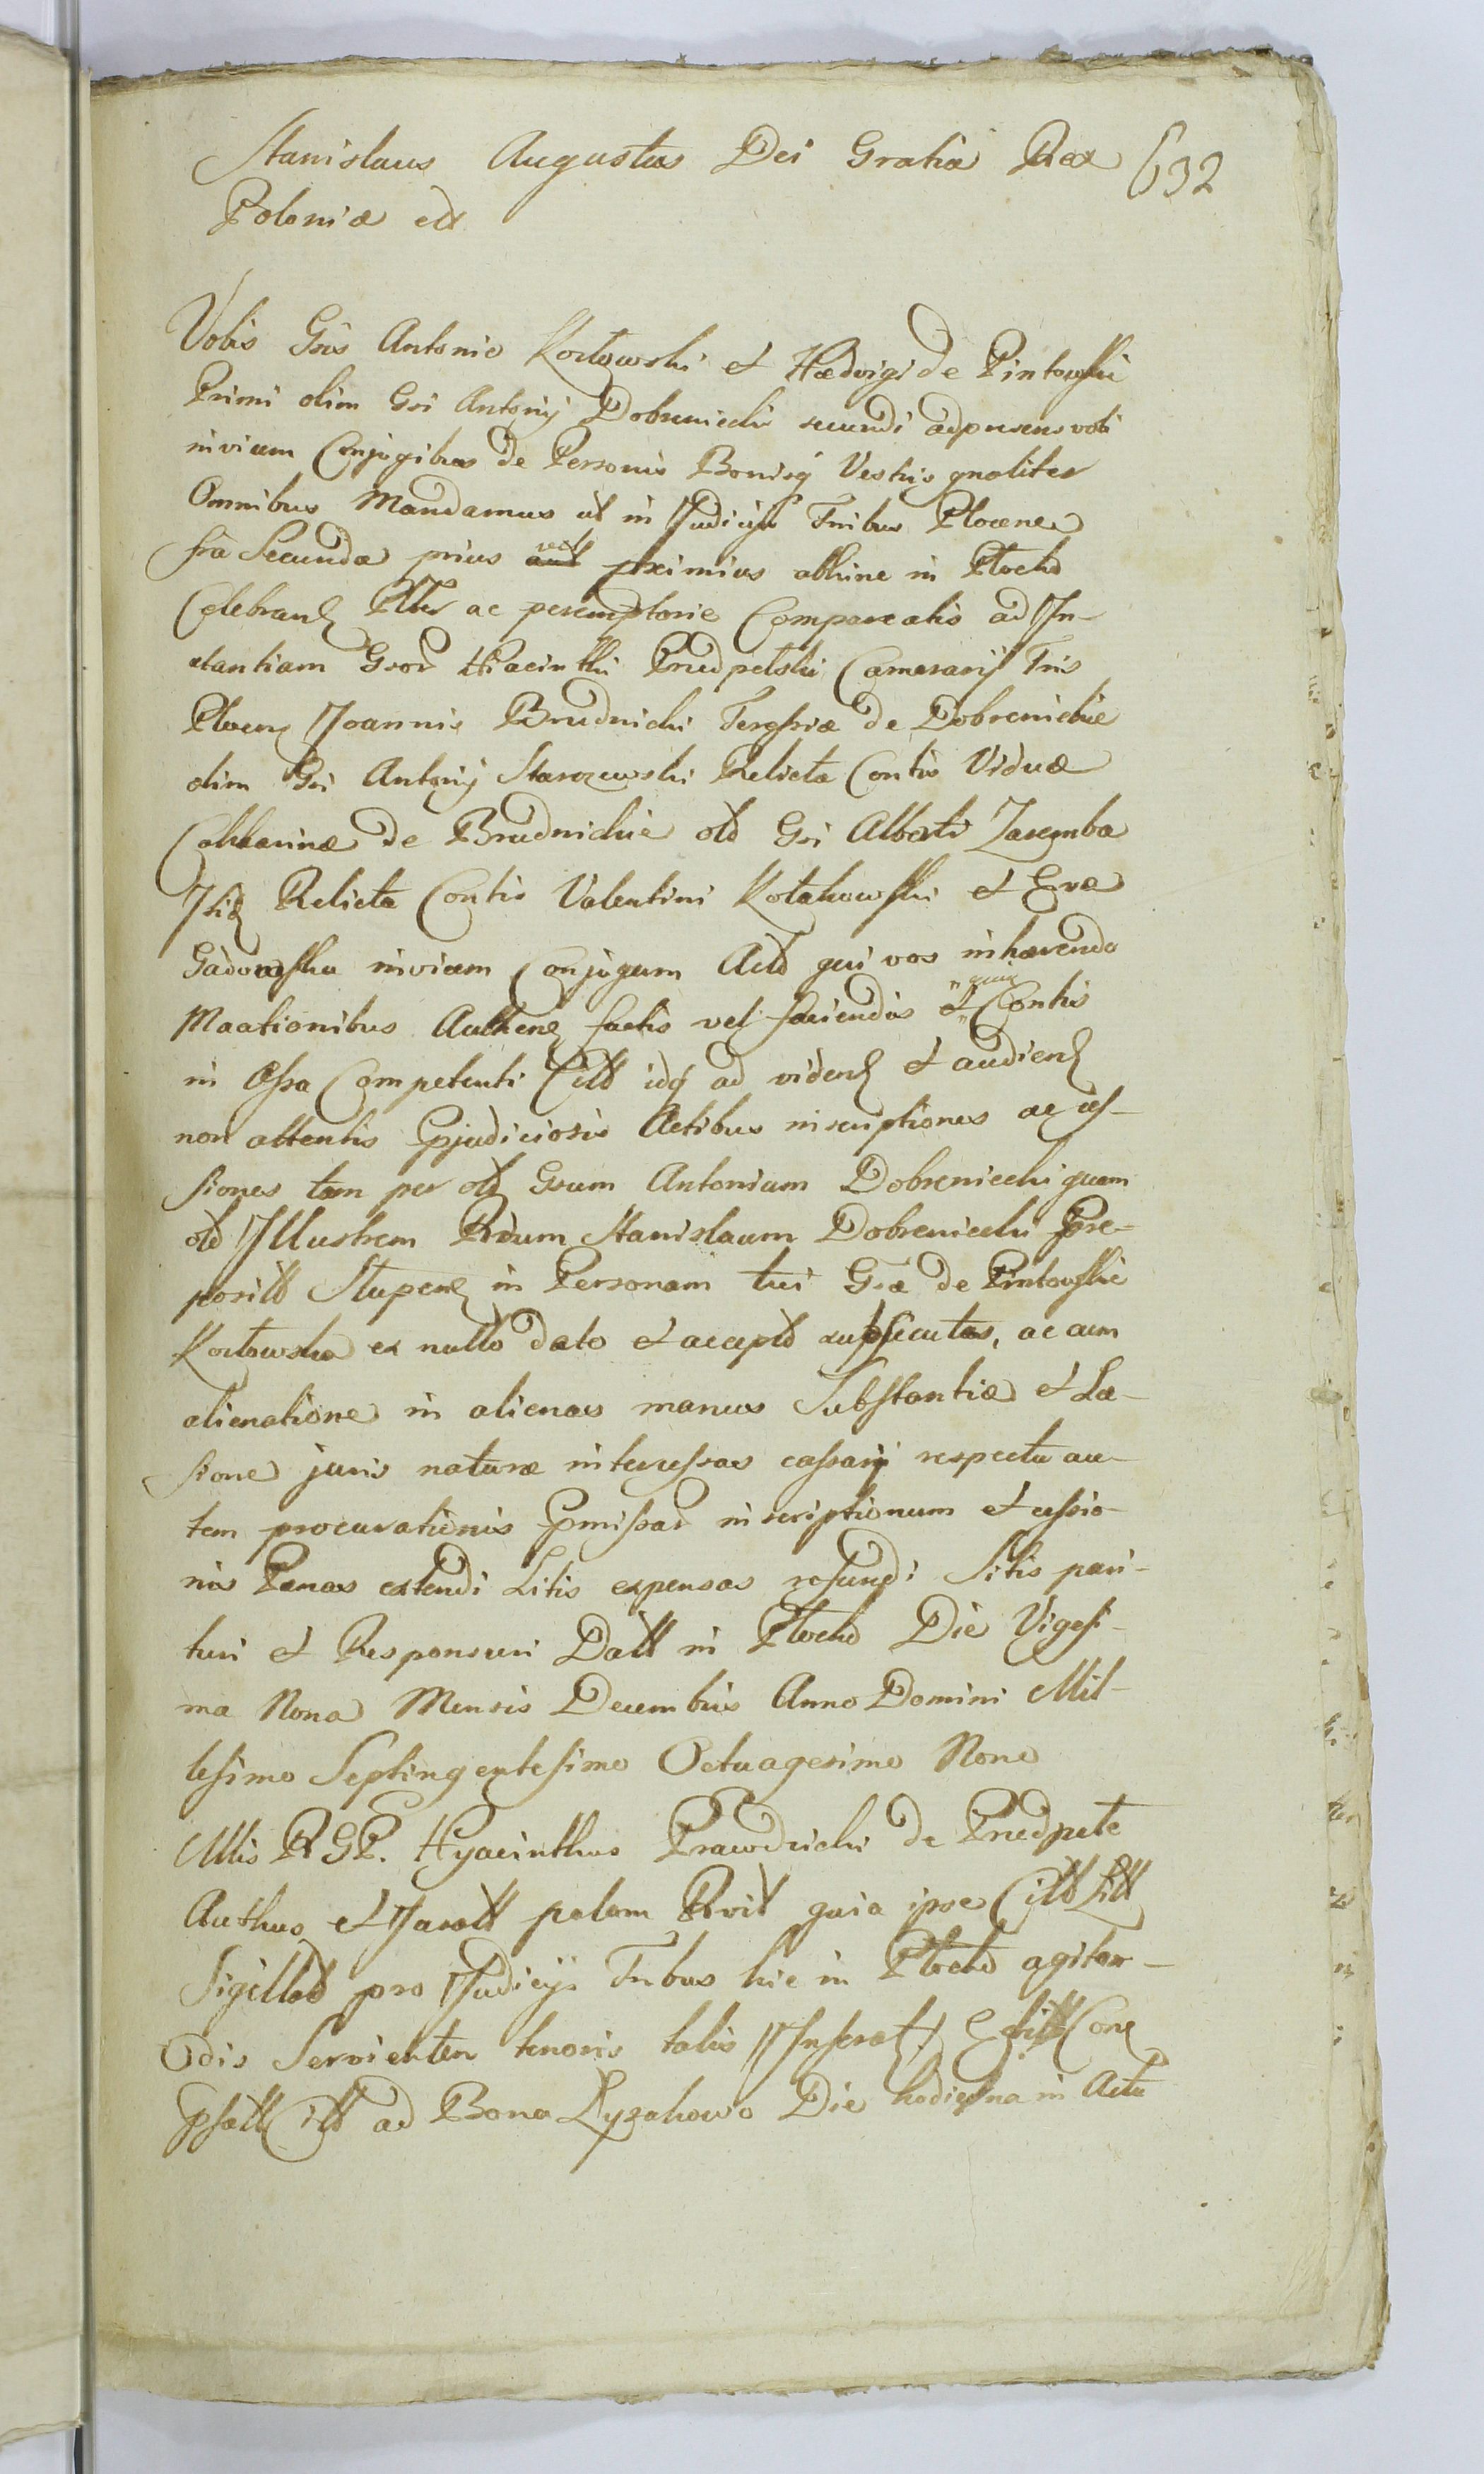 Stanislaus Augustus Dei Gratia Rex
632
Poloniæ etc
Vobis Gsis Antonio Kozłowski et Hædvigi de Pintowskie
Primi olim Gsi Antonij Dobrzeniecki secundi adpræsens voti
invicem Conjugibus de Personis Bonisq Vestris gnaliter
Omnibus Mandamus ut in Judicijs Trribus Plocen
fra Secunda prius vel pximius abhinc in Plocko
Celebrand Pltter ac peremptorie Compareatis ad In-
stantiam Gsor Hiacinthi Przedpełski Camerarij Tris
Plocen Joannis Brudnicki Teressiæ de Dobrzenickie
olim Gsi Antonij Starorzewski Relicta Contis Viduæ
Catharinæ de Brudnickie old Gsi Alberti Zaremba
Relicta Contis Valentini Kołakowski et Evæ
Sadowska invicem Conjugum Actt qui vos inhærendo
Maationibus Authen factis vel faciendis quiq Contis
in Assa Competenti Citt idq ad videnď et audienď
non attentis Ppjudiciosis Actibus inscriptiones ac ces-
siones tam per old Gsum Antonium Dobrzeniecki quam
old Illustrem Rdum Stanislaum Dobrzeniecki Præ-
positt Stupen in Personam tui Gsæ de Pintowskie
Kozłowska ex nullo dato et accepto subsecutas, ac cum
alienatione in alienas manus Substantiæ et Læ-
sione juris naturæ intercessas cassarij respectu au-
tem procurationis Pmissar inscriptionum et cessio-
nis Pænas extendi Litis expensas refundi Sitis pari-
turi et Responsuri Datt in Plocko Die Vigesi-
ma Nona Mensis Decembris Anno Domini Mil-
lesimo Septingentesimo Octuagesimo Nono
Mtis R G P. Hyacinthus Prawdzicki de Przedpełte
Authus et Juratt palam Rvit quia ipse Citt Litt
Sigillat pro Judicijs Trribus hic in Plocko agitan-
dis Servienten tenoris talis Inserat
Citt ad Bona Łyzakowo Die hodierna in Actu